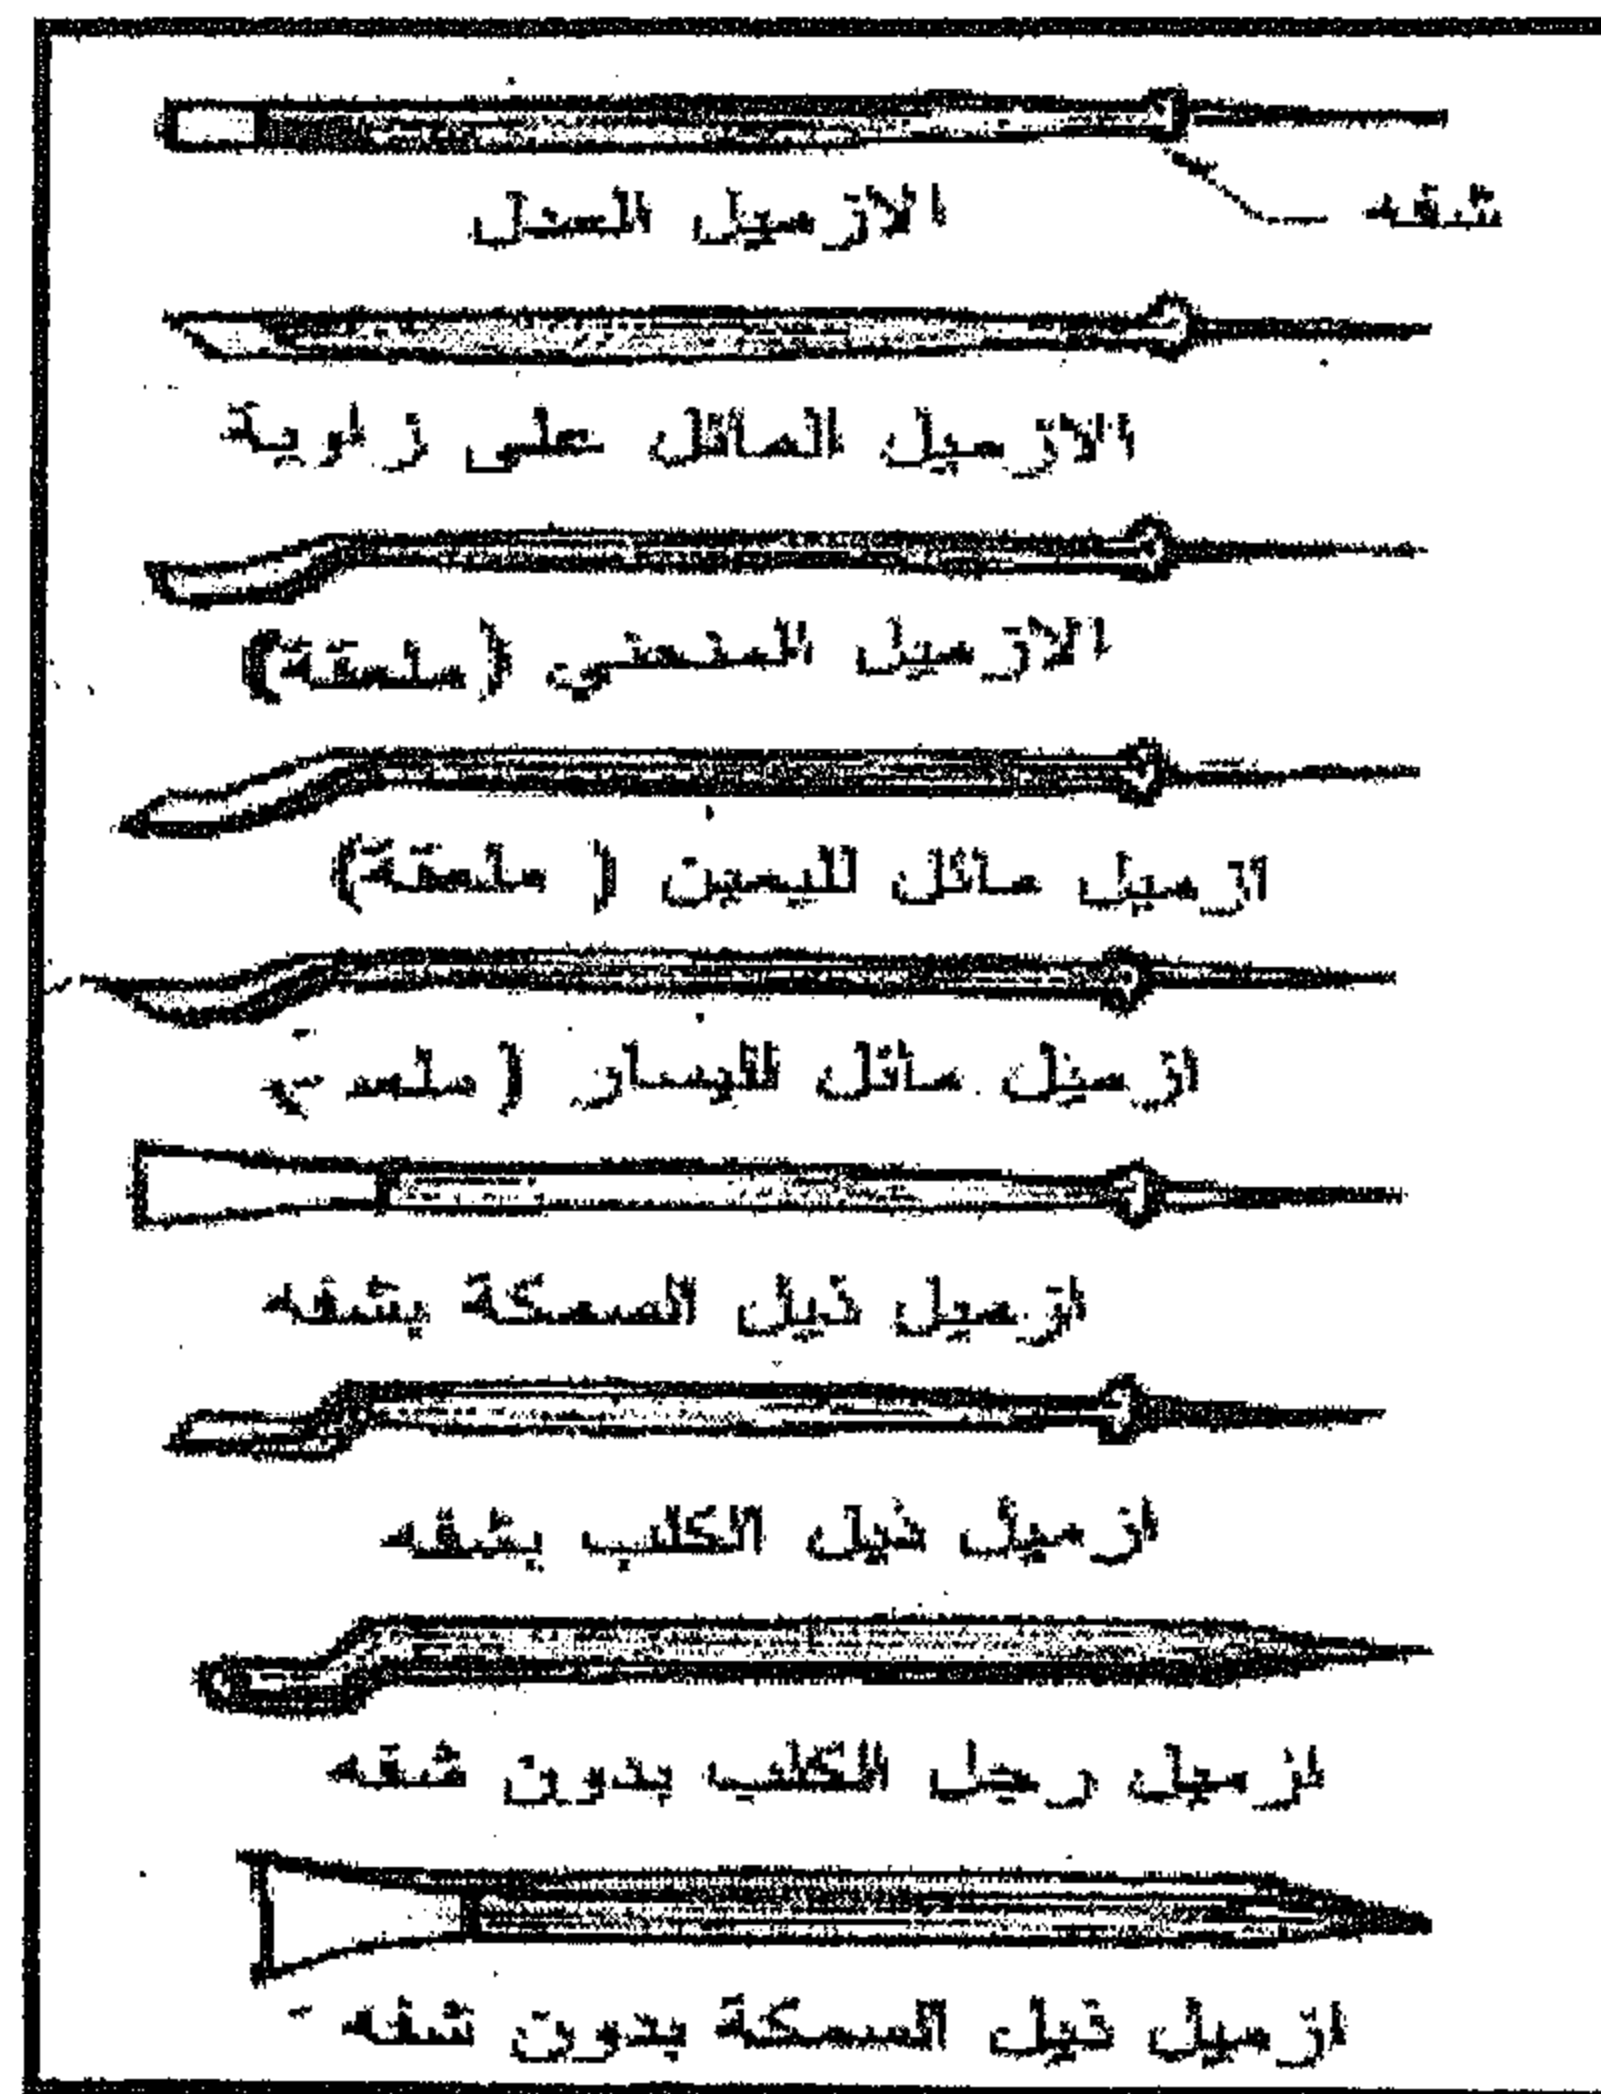 شفه
الازميل العدل
الازميل المائل على زاوية
الازميل المنحنى (ملعقة)
ازميل مائل لليمين (ملعقة)
ازميل مائل لليسار (
ازميل ذيل السمكة بشفه
ازميل ذيل الكلب بشفه
ازميل رجل الكلب بدون شفه
ازميل ذيل السمكة بدون شفه